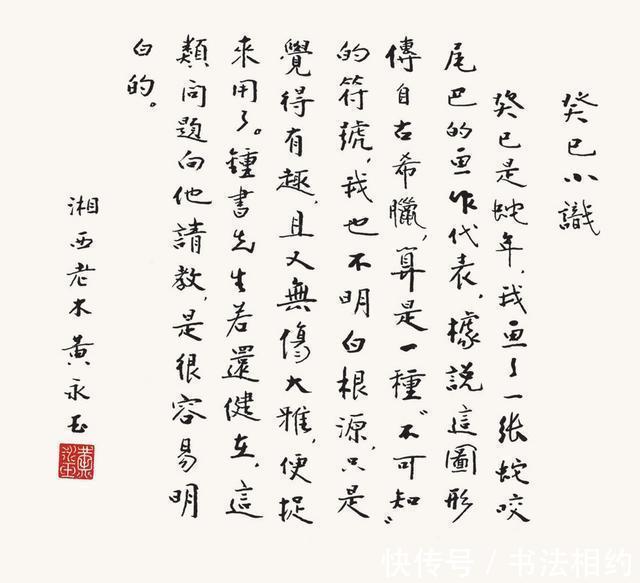 癸巳小識
癸巳是蛇年，我画了一张蛇咬
尾巴的画作代表，據説這圖形
傳自古希臘，算是一種"不可知"
的符號，我也不明白根源，只是
覺得有趣，且又無傷大雅，便捉
來用了。鍾書先生若還健在，這
類问题向他請教，是很容易明
白的。
湘西老木黄永玉
黄永玉
快传号/书法相约